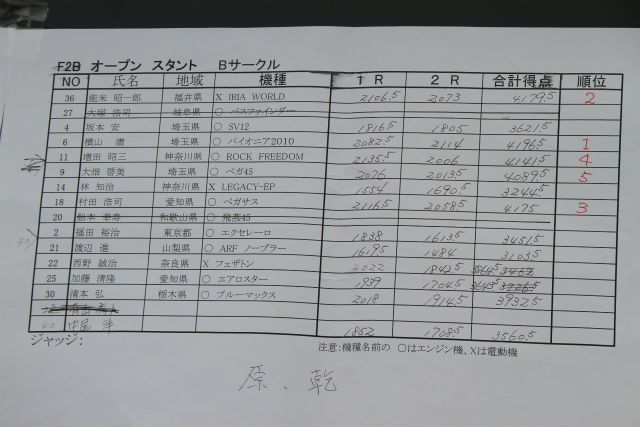 F2B オープン スタント Bサークル
NO 氏名 地域 機種 1 R 2 R 合計得点 順位
36 能米 昭一郎 福井県 X IRIA WORLD 2106.5 2073 4179.5 2
27 大塚 浩司 岐阜県 〇 パスファインダー
4 坂本 安 埼玉県 〇 SV12 1816.5 1805 3621.5
6 横山 満 埼玉県 〇 パイオニア2010 2082.5 2114 4196.5 1
11 増田 昭三 神奈川県 〇 ROCK FREEDOM 2135.5 2006 4141.5 4
9 大畑 啓美 埼玉県 〇 ベガ45 2076 2013.5 4089.5 5
14 林 知治 神奈川県 X LEGACY-EP 1554 1690.5 3244.5
18 村田 浩司 愛知県 〇 ペガサス 2116.5 2058.5 4175 3
20 船本 幸寿 和歌山県 〇 飛燕45
2 福田 裕治 東京都 〇 エクセレーロ 1838 1613.5 3451.5
21 渡辺 進 山梨県 〇 ARF ノーブラー 1619.5 1484 3103.5
22 西野 誠治 奈良県 X フェザトン 2022 1842.5
25 加藤 清隆 愛知県 〇 エアロスター 1704.5
30 清本 弘 栃木県 〇 ブルーマックス 2018 1914.5 3932.5
40 1852 1708.5 3560.5
ジャッジ:
注意:機種名前の 〇はエンジン機、Xは電動機
原、乾